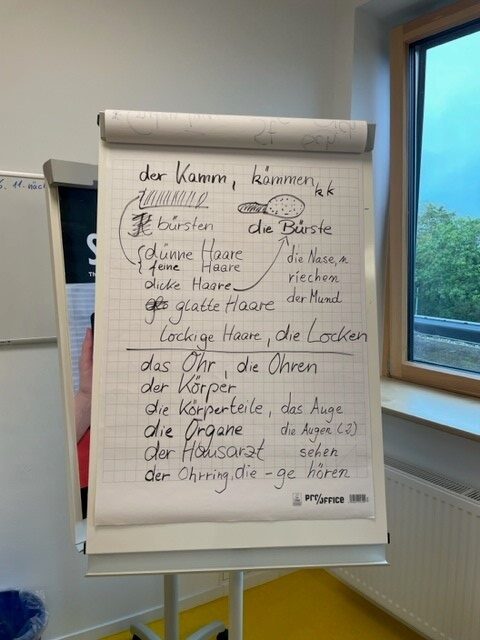 der Kamm, kämmen
kk
bürsten
die Bürste
dünne Haare
feine Haare
dicke Haare
glatte Haare
die Nase, n
riechen
der Mund
lockige Haare, die Locken
das Ohr, die Ohren
der Körper
die Körperteile, das Auge
die Organe
die Augen (2)
der Hausarzt
sehen
der Ohrring, die -ge hören
PRO/OFFICE